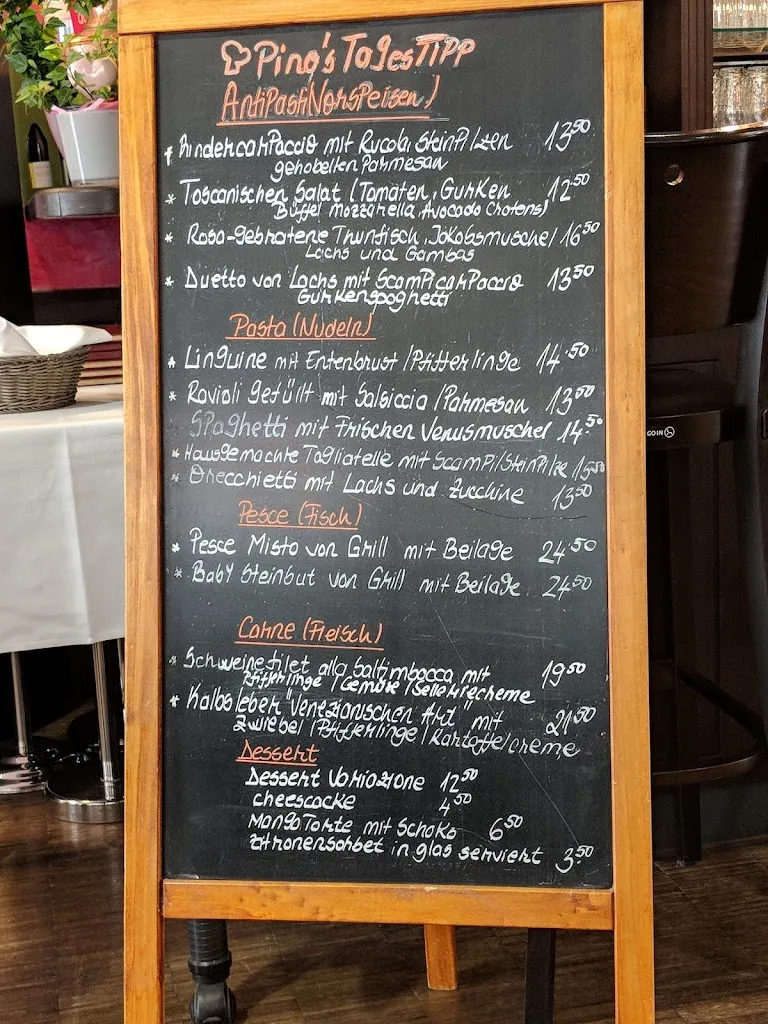 Pino's TagesTIPP
AntiPasti(VorsPeisen)
* RindercarPaccio mit Rucola SteinPilzen 13,50
gehobelten Parmesan
* Toscanischen Salat (Tomaten, Gurken 12,50
Büffel Mozzarella, Avocado Crotens)
* Rosa-Gebratene Thunfisch, Jakobsmuschel 16,50
Lachs und Gambas
* Duetto von Lachs mit ScamPi carPaccio 13,50
Gurkenspaghetti
Pasta (Nudeln)
* Linguine mit Entenbrust / Pfifferlinge 14,50
* Ravioli Gefüllt mit Salsiccia / Parmesan 13,00
SPaghetti mit Frischen Venusmuschel 14,50
* Hausgemachte Tagliatelle mit ScamPi/SteinPilze 15,50
* Orecchietti mit Lachs und Zucchine 13,50
Pesce (Fisch)
* Pesce Misto von Grill mit Beilage 24,50
* Baby Steinbut von Grill mit Beilage 24,50
Carne (Fleisch)
* Schweinefilet alla Saltimbocca mit 19,50
Pfifferlinge / Gemüse / Selleriecreme
* Kalbsleber "Venezianischen Art" mit 21,50
Zwiebel / Pfifferlinge / Kartoffelcreme
Dessert
Dessert Variazione 12,50
cheescacke 4,50
Mango Torte mit Schoko 6,50
Zitronensorbet in glas serviert 3,50
GO IN